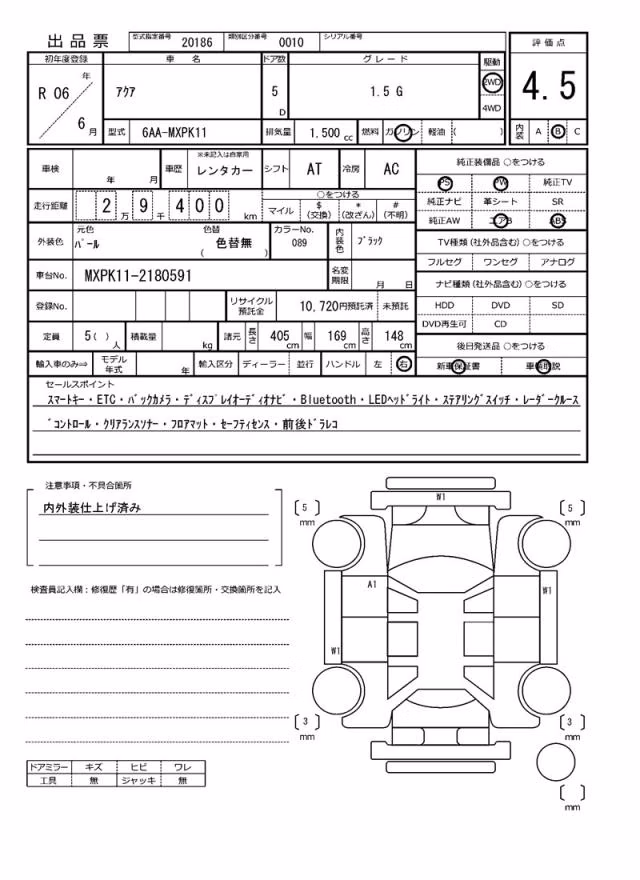 出品票 型式指定番号 20186 類別区分番号 0010 シリアル番号
評価点
4.5
内装 A B C
初年度登録 車名 ドア数 グレード 駆動
R 06 年 6 月 アクア 5 D 1.5 G 2WD 4WD
型式 6AA-MXPK11 排気量 1.500 cc 燃料 ガソリン 軽油 ( )
車検 年 月 車歴 ※未記入は自家用 レンタカー シフト AT 冷房 AC
走行距離 2 万 9 千 4 0 0 km
○をつける
マイル $(交換) *(改ざん) #(不明)
外装色 元色 パール 色替 色替無 ( ) カラーNo. 089 内装色 ブラック
車台No. MXPK11-2180591 名変期限 月 日
登録No. リサイクル預託金 10,720円預託済 未預託
定員 5( )人 積載量 kg 諸元 長さ 405 cm 幅 169 cm 高さ 148 cm
輸入車のみ⇒ モデル年式 年 輸入区分 ディーラー・並行 ハンドル 左・右
純正装備品 ○をつける
PS PW 純正TV
純正ナビ 革シート SR
純正AW エアB ABS
TV種類(社外品含む)○をつける
フルセグ ワンセグ アナログ
ナビ種類(社外品含む)○をつける
HDD DVD SD
DVD再生可 CD
後日発送品 ○をつける
新車保証書 車輌取説
セールスポイント
スマートキー・ETC・バックカメラ・ディスプレイオーディオナビ・Bluetooth・LEDヘッドライト・ステアリングスイッチ・レーダークルーズ
コントロール・クリアランスソナー・フロアマット・セーフティセンス・前後ドラレコ
注意事項・不具合箇所
内外装仕上げ済み
検査員記入欄:修復歴「有」の場合は修復箇所・交換箇所を記入
ドアミラー キズ ヒビ ワレ
工具 無 ジャッキ 無
W1
[ 5 ] mm
[ 5 ] mm
A1
W1
W1
[ 3 ] mm
[ 3 ] mm
[ ] mm